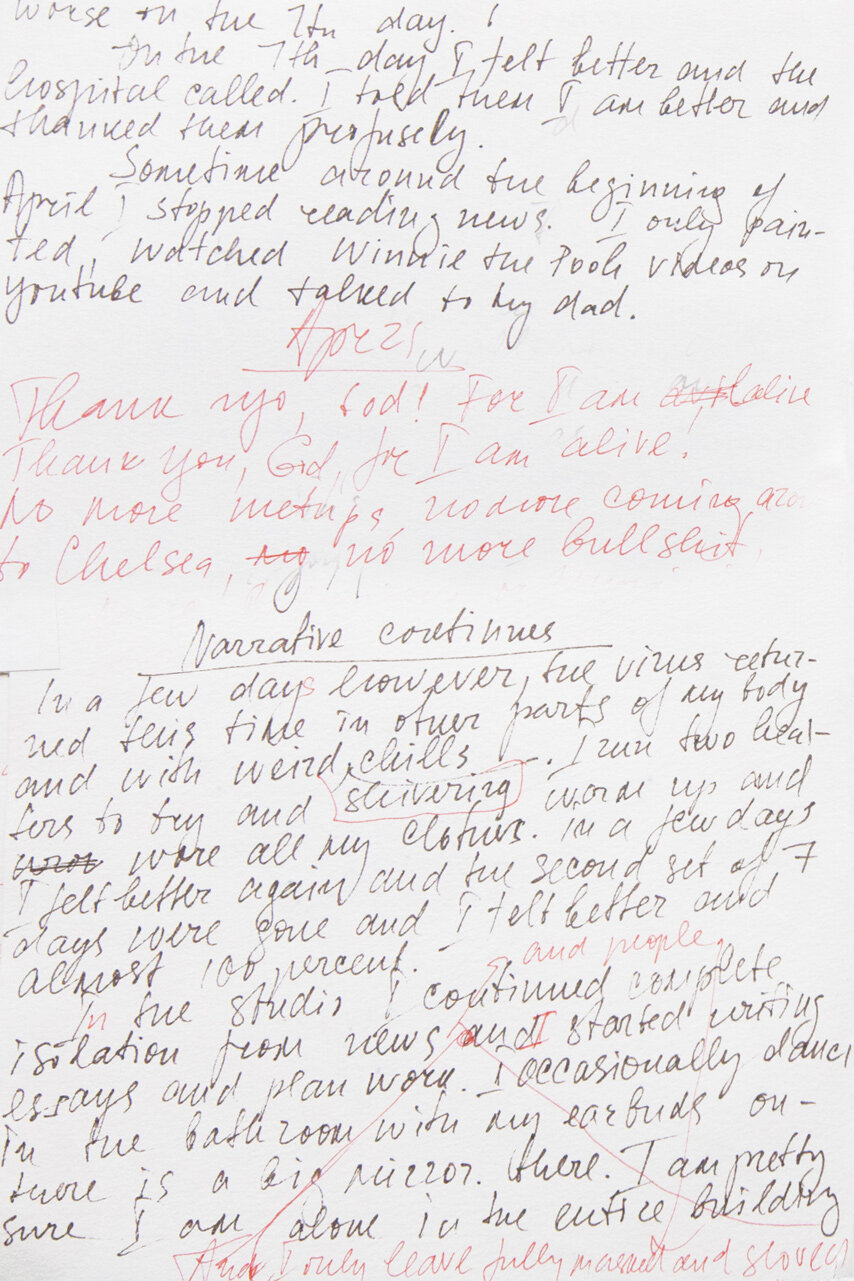 worse on the 7th day.
On the 7th day I felt better and the
hospital called. I told them I am better and
thanked them profusely.
Sometime around the beginning of
April I stopped reading news. I only pain-
ted, watched Winnie the Pooh videos on
youtube and talked to my dad.
Thank uyo, God! For I am alive
Thank you, God, for I am alive.
No more metups, no more coming
to Chelsea, no more bullshit.
Narrative continues
In a few days however, the virus retur-
ned this time in other parts of my body
and with weird chills. I run two hea-
ters to try and shivering warm up and
wore all my clothes. In a few days
I felt better again and the second set of 7
days were gone and I felt better and
almost 100 percent.
and people,
In the studio I continued complete
isolation from news and I started writing
essays and plan work. I occasionally danc
in the bathroom with my earbuds on-
there is a big mirror. there. I am pretty
sure I am alone in the entire building
And I only leave fully masked and gloved